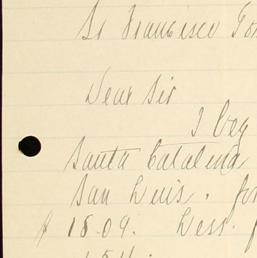 Sr Francisco
Dear Sir
I beg
Santa Catalina
San Luis.
$ 18.09. Less.